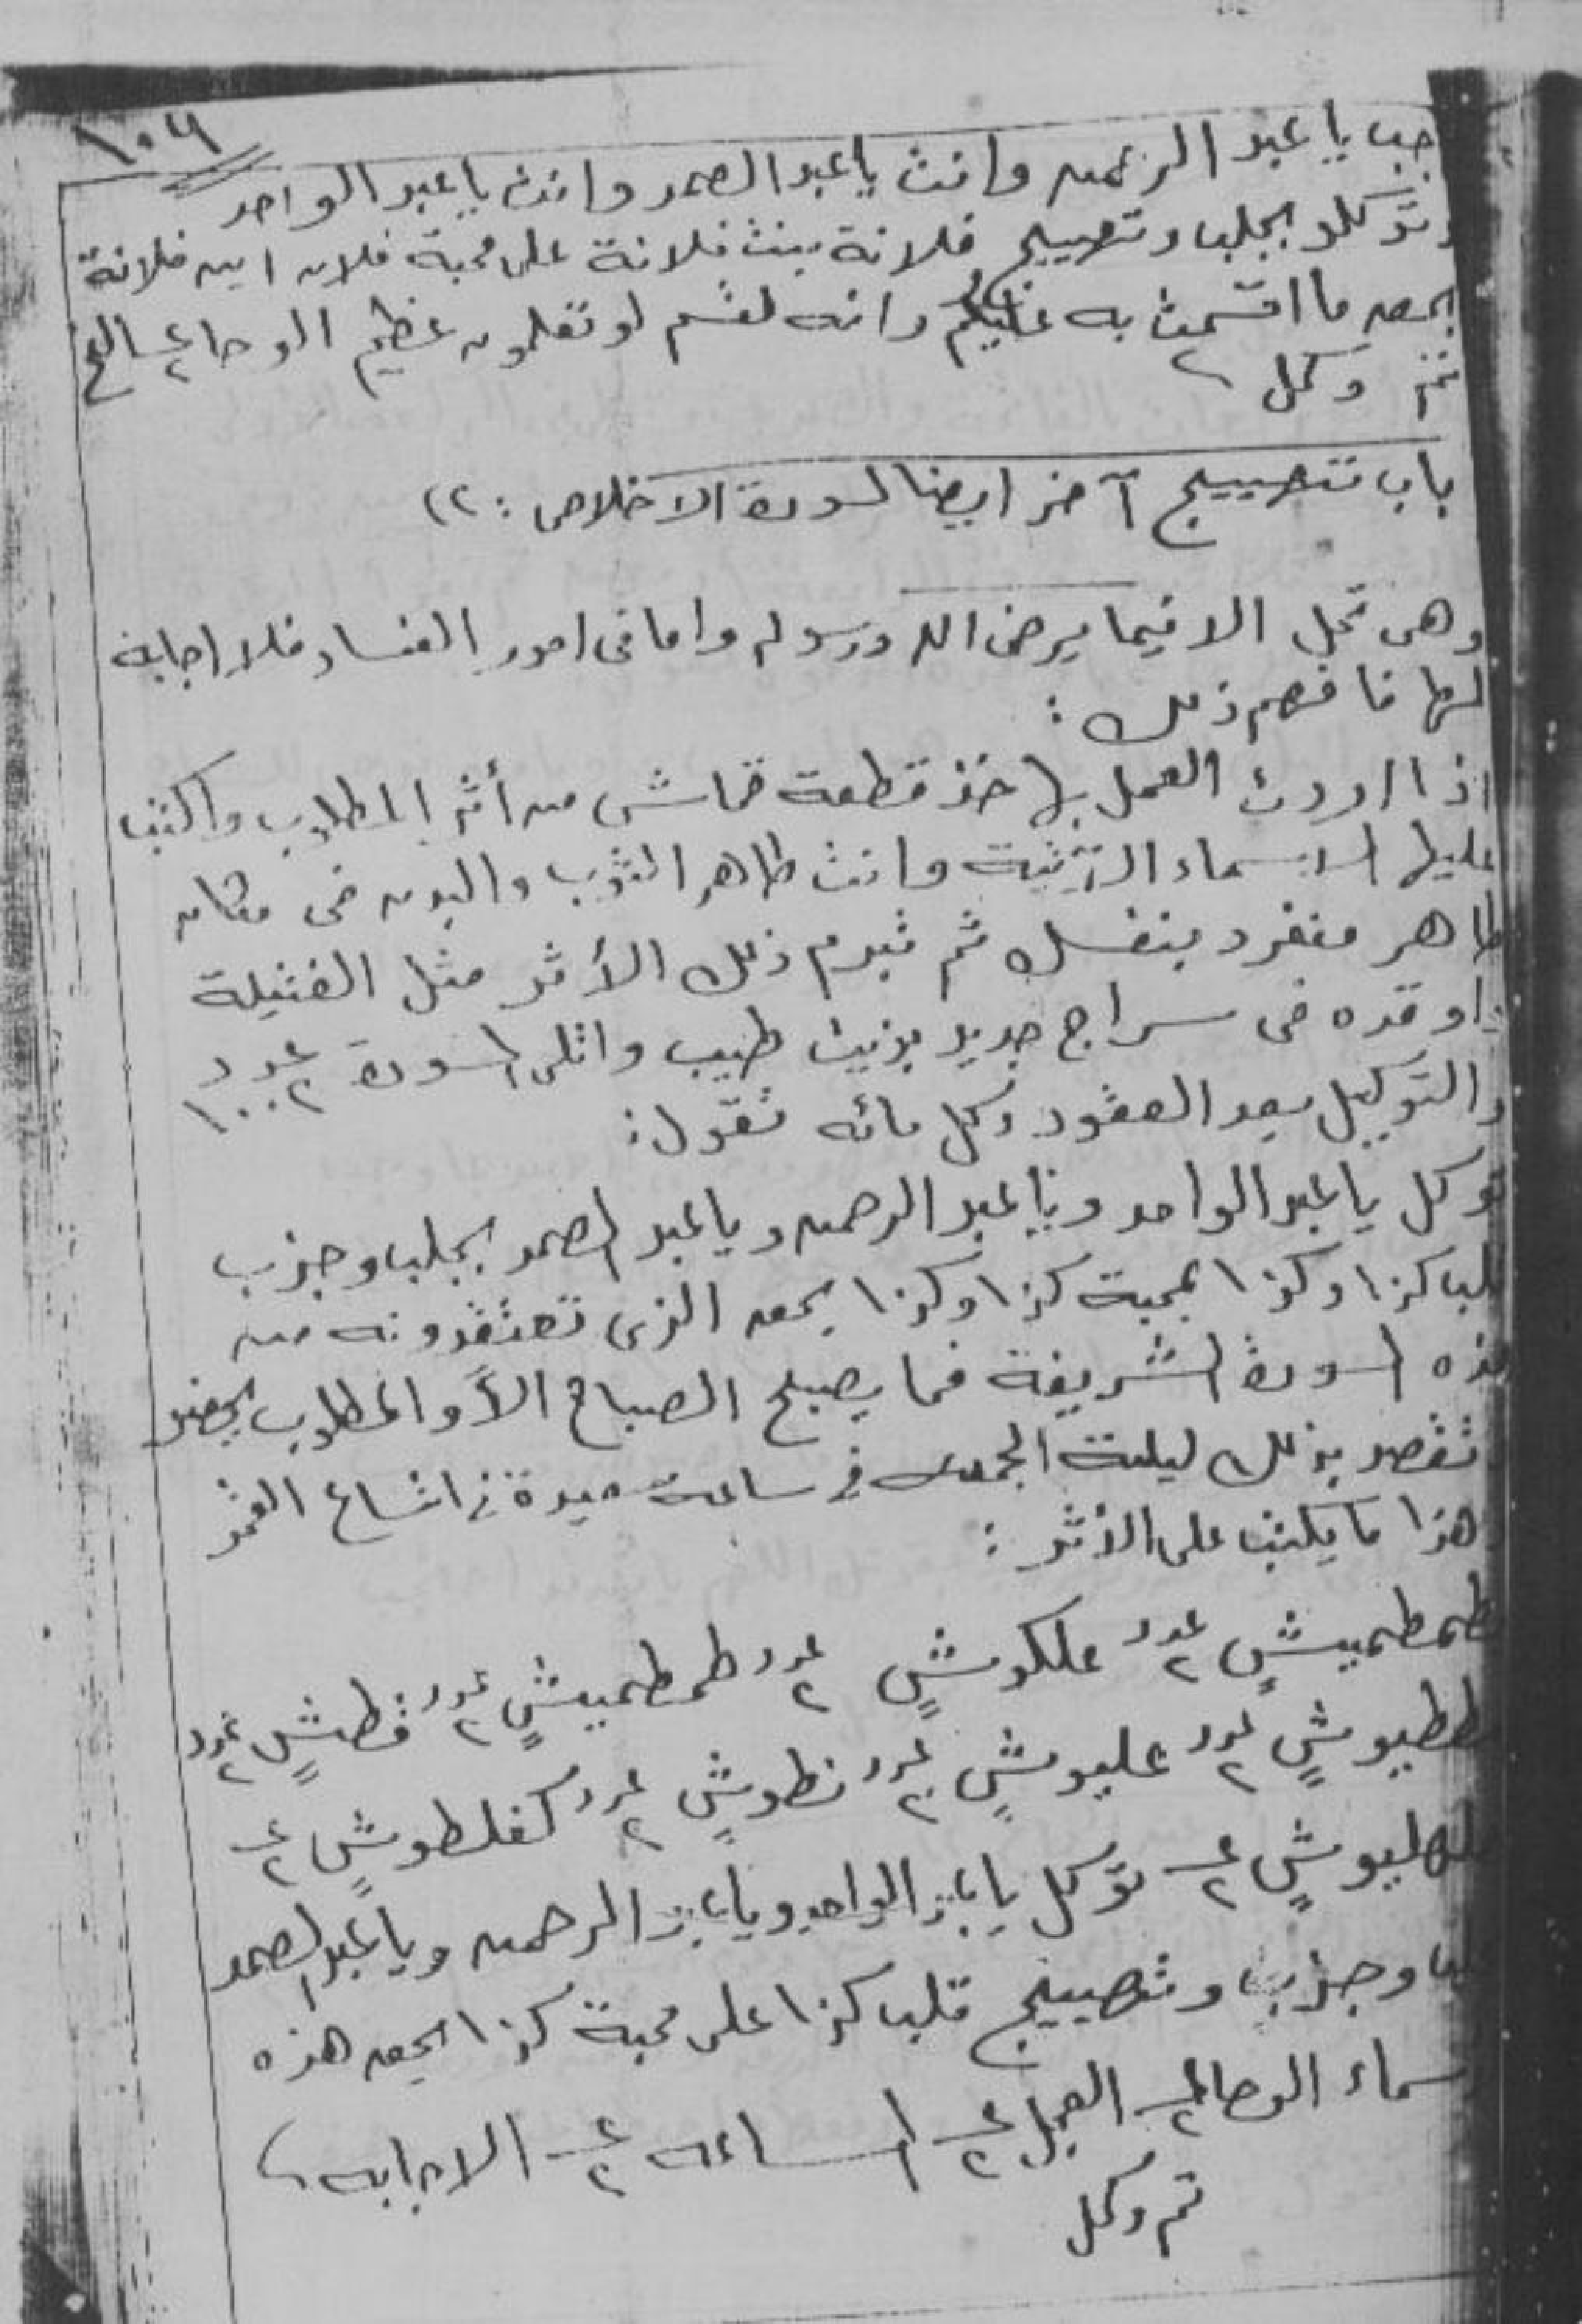 ١٠٦
اجب يا عبد الرحمن وانت يا عبد الصمد وانت يا عبد الواحد
وتوكلو بجلب وتهييج فلانة بنت فلانة على محبة فلان ابن فلانة
بحق ما اقسمت به عليكم وانه لقسم لو تعلمون عظيم الوحا ع٢ الخ
تم وكمل
باب تهييج آخر ايضا لسورة الاخلاص : ٢)
وهى تحل الا فيما يرضى الله ورسوله واما فى امور الفساد فلا اجابه
لها فافهم ذلك :
اذا اردت العمل بها خذ قطعة قماش من أثر المطلوب واكتب
عليها الاسماء الآتية وانت طاهر الثوب والبدن فى مكان
طاهر منفرد بنفسك ثم تبرم ذلك الأثر مثل الفتيلة
واوقده فى سراج جديد بزيت طيب واتلى السورة عدد ١٠٠٢
والتوكيل بعد العقود وكل مائه تقول :
توكل يا عبد الواحد ويا عبد الرحمن ويا عبد الصمد بجلب وجذب
قلب كذا وكذا بمحبة كذا وكذا بحق الذى تعتقدونه من
هذه السورة الشريفة فما يصبح الصباح الأ و المطلوب يحضر
تقصد بذلك ليلة الجمعه فى ساعة سعيدة فى اتساع القمر
وهذا ما يكتب على الأثر :
طمطميشٍ عدد ٢ علكوشٍ عدد ٢ طمطميشٍ عدد ٢ فطشٍ عدد ٢
ططيوشٍ عدد ٢ عليوشٍ عدد ٢ نطوشٍ عدد ٢ كفلطوشٍ ع٢
ع٢ توكل يا عبد الواحد ويا عبد الرحمن ويا عبد الصمد
وجذب وتهييج قلب كذا على محبة كذا بحق هذه
الاسماء الوحا ع٢ العجل ع٢ الساعه ع٢ الاجابه
تم وكمل